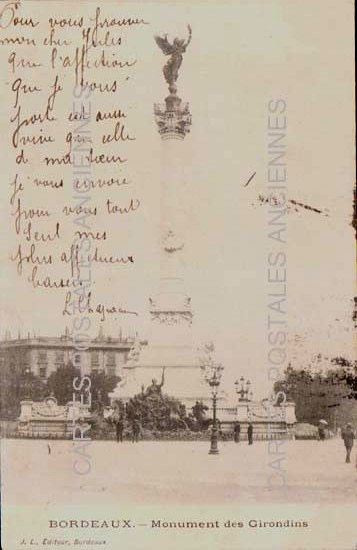 Pour vous prouver
mon cher Jules
que l'affection
que je vous
porte est aussi
vive que celle
de ma sœur
je vous envoie
pour vous tout
seul mes
plus affectueux
baisers
CARTES POSTALES ANCIENNES
CARTES POSTALES ANCIENNES
BORDEAUX. - Monument des Girondins
J. L., Editeur, Bordeaux